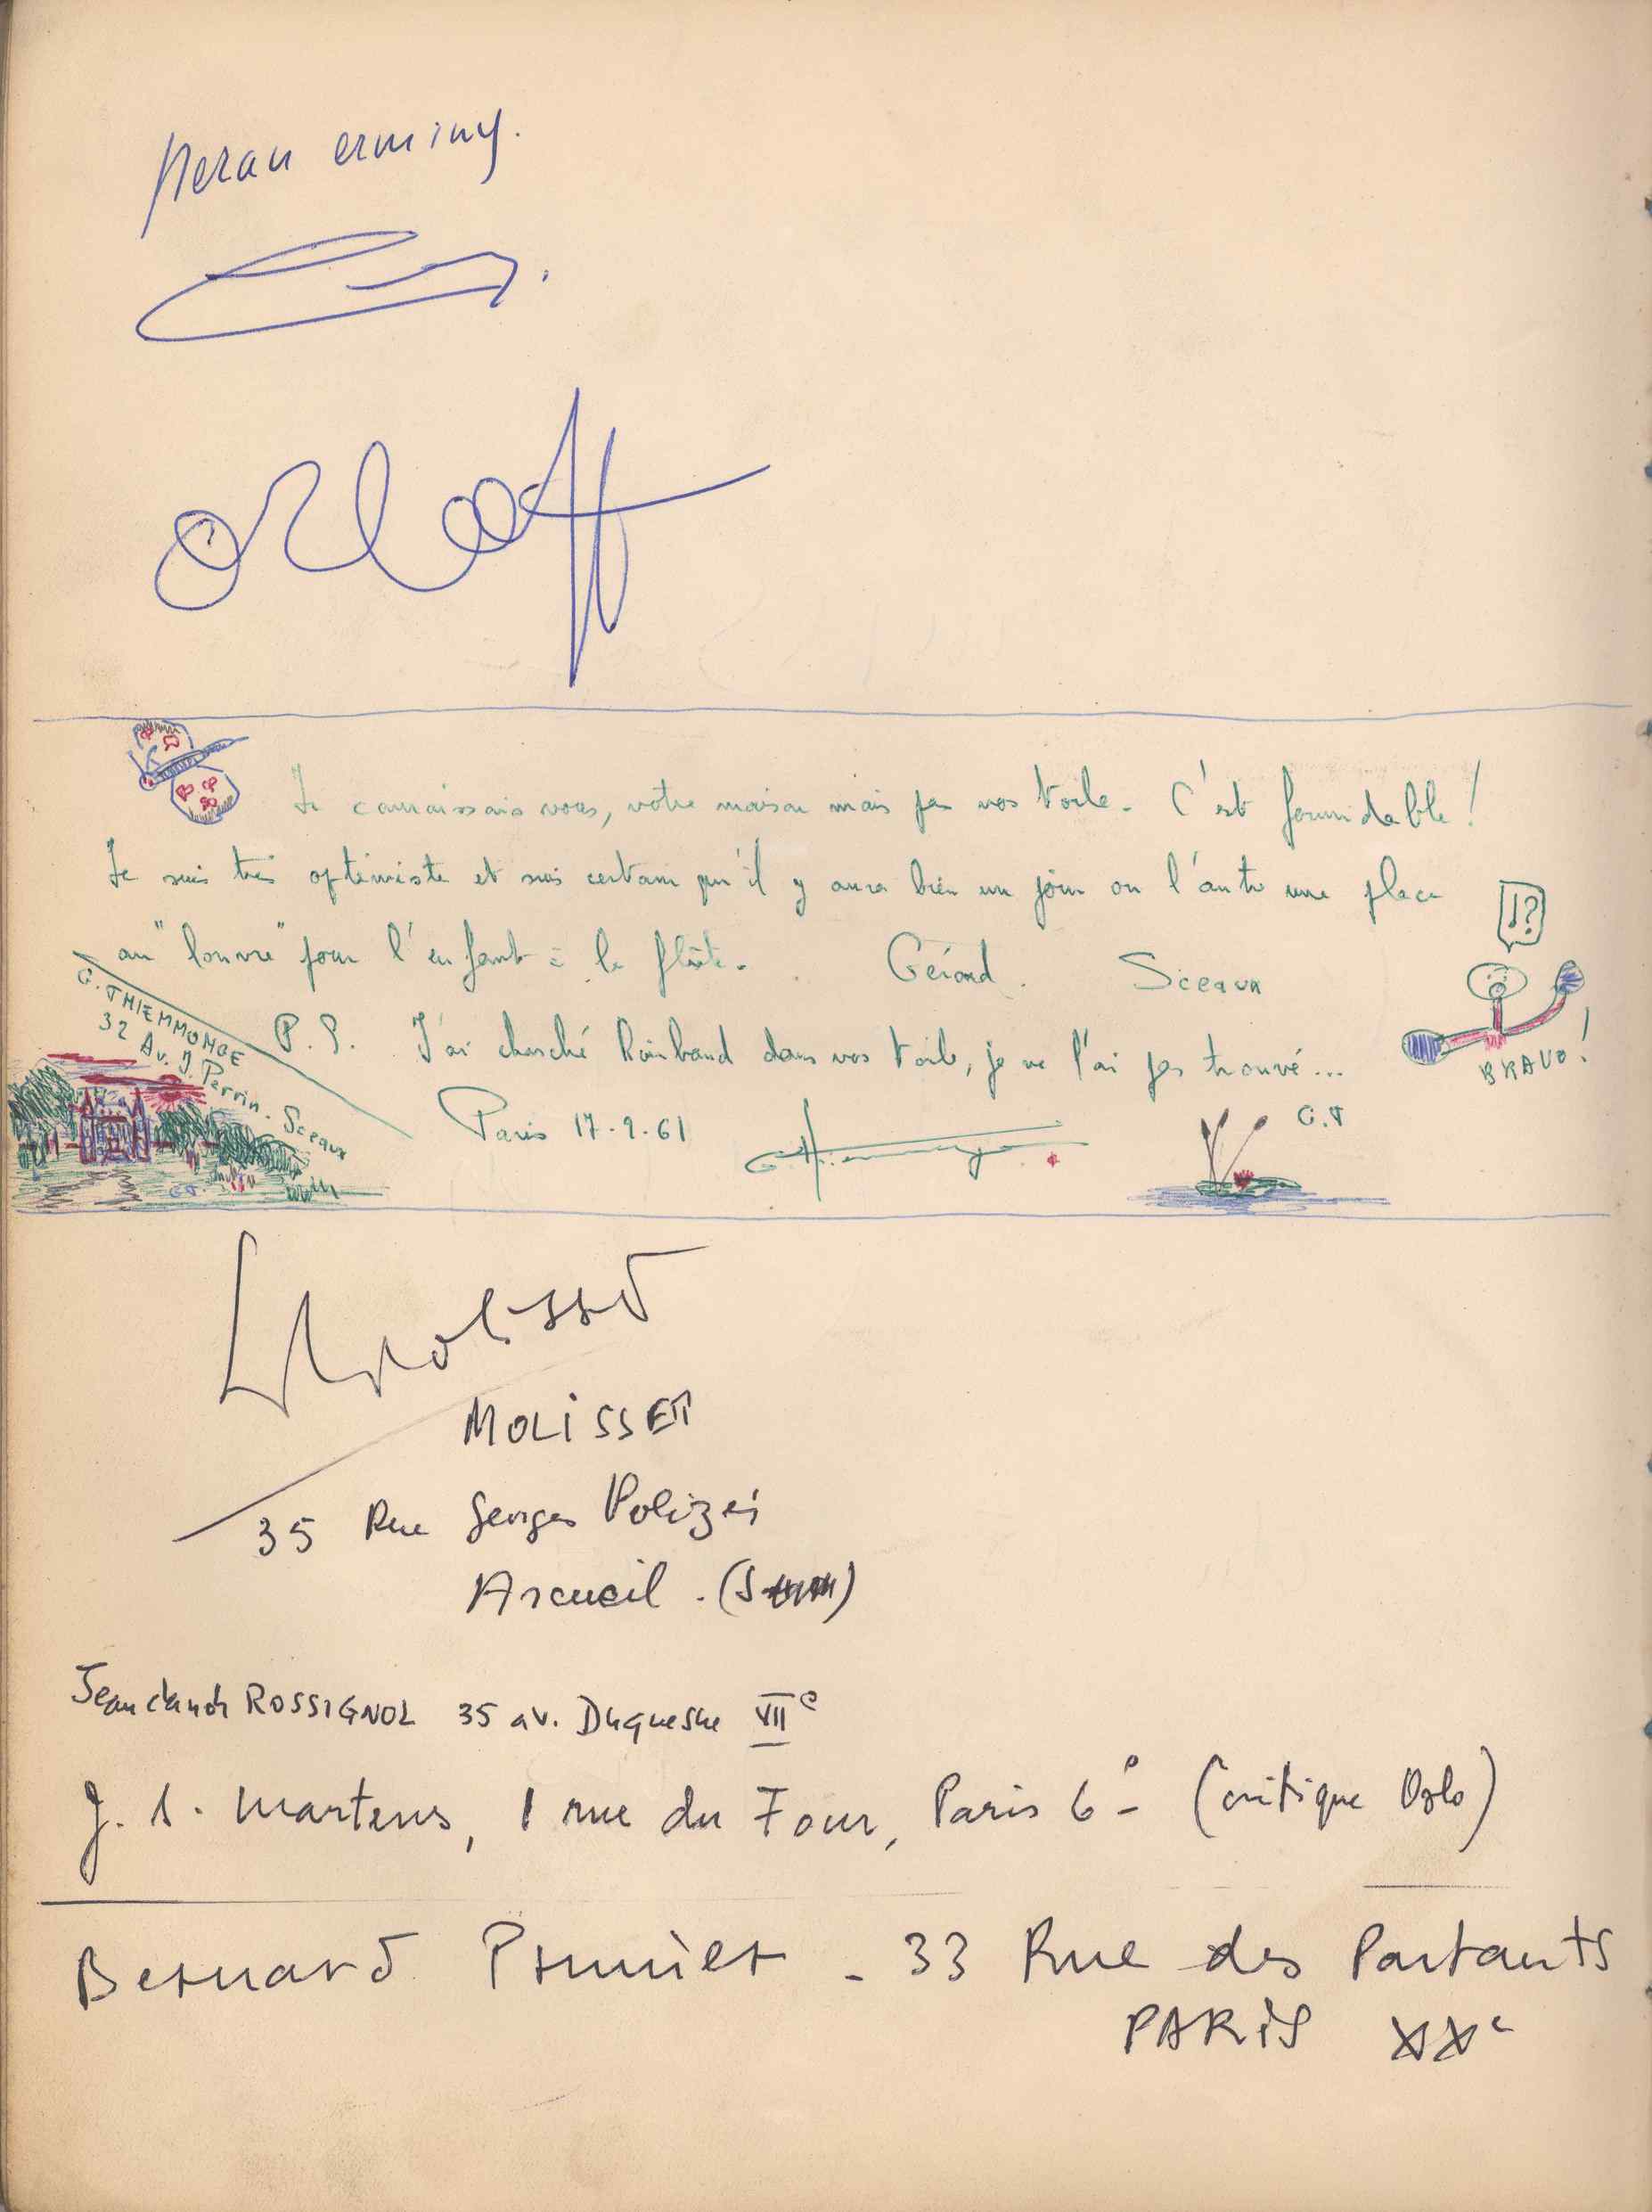 Peran erminy.
orloff
Je connaissais vous, votre maison mais pas vos toile. C'est formidable!
Je suis très optimiste et suis certain qu'il y aura bien un jour ou l'autre une place
au "louvre" pour l'enfant à la flûte. Gérard. Sceaux
G. THIEMMONGE
32 Av. J. Perrin. Sceaux
!?
BRAVO!
P.S. J'ai cherché Rimbaud dans vos toile, je ne l'ai pas trouvé...
G.T
Paris 17.2.61
MOLISSET
35 Rue Georges Polizei
Arcueil. (S
Jean claude ROSSIGNOL 35 av. Duquesne VIIe
J. S. Martens, 1 rue du Four, Paris 6e - (critique Oslo)
Bernard Prunier - 33 Rue des Partants
PARIS XXe